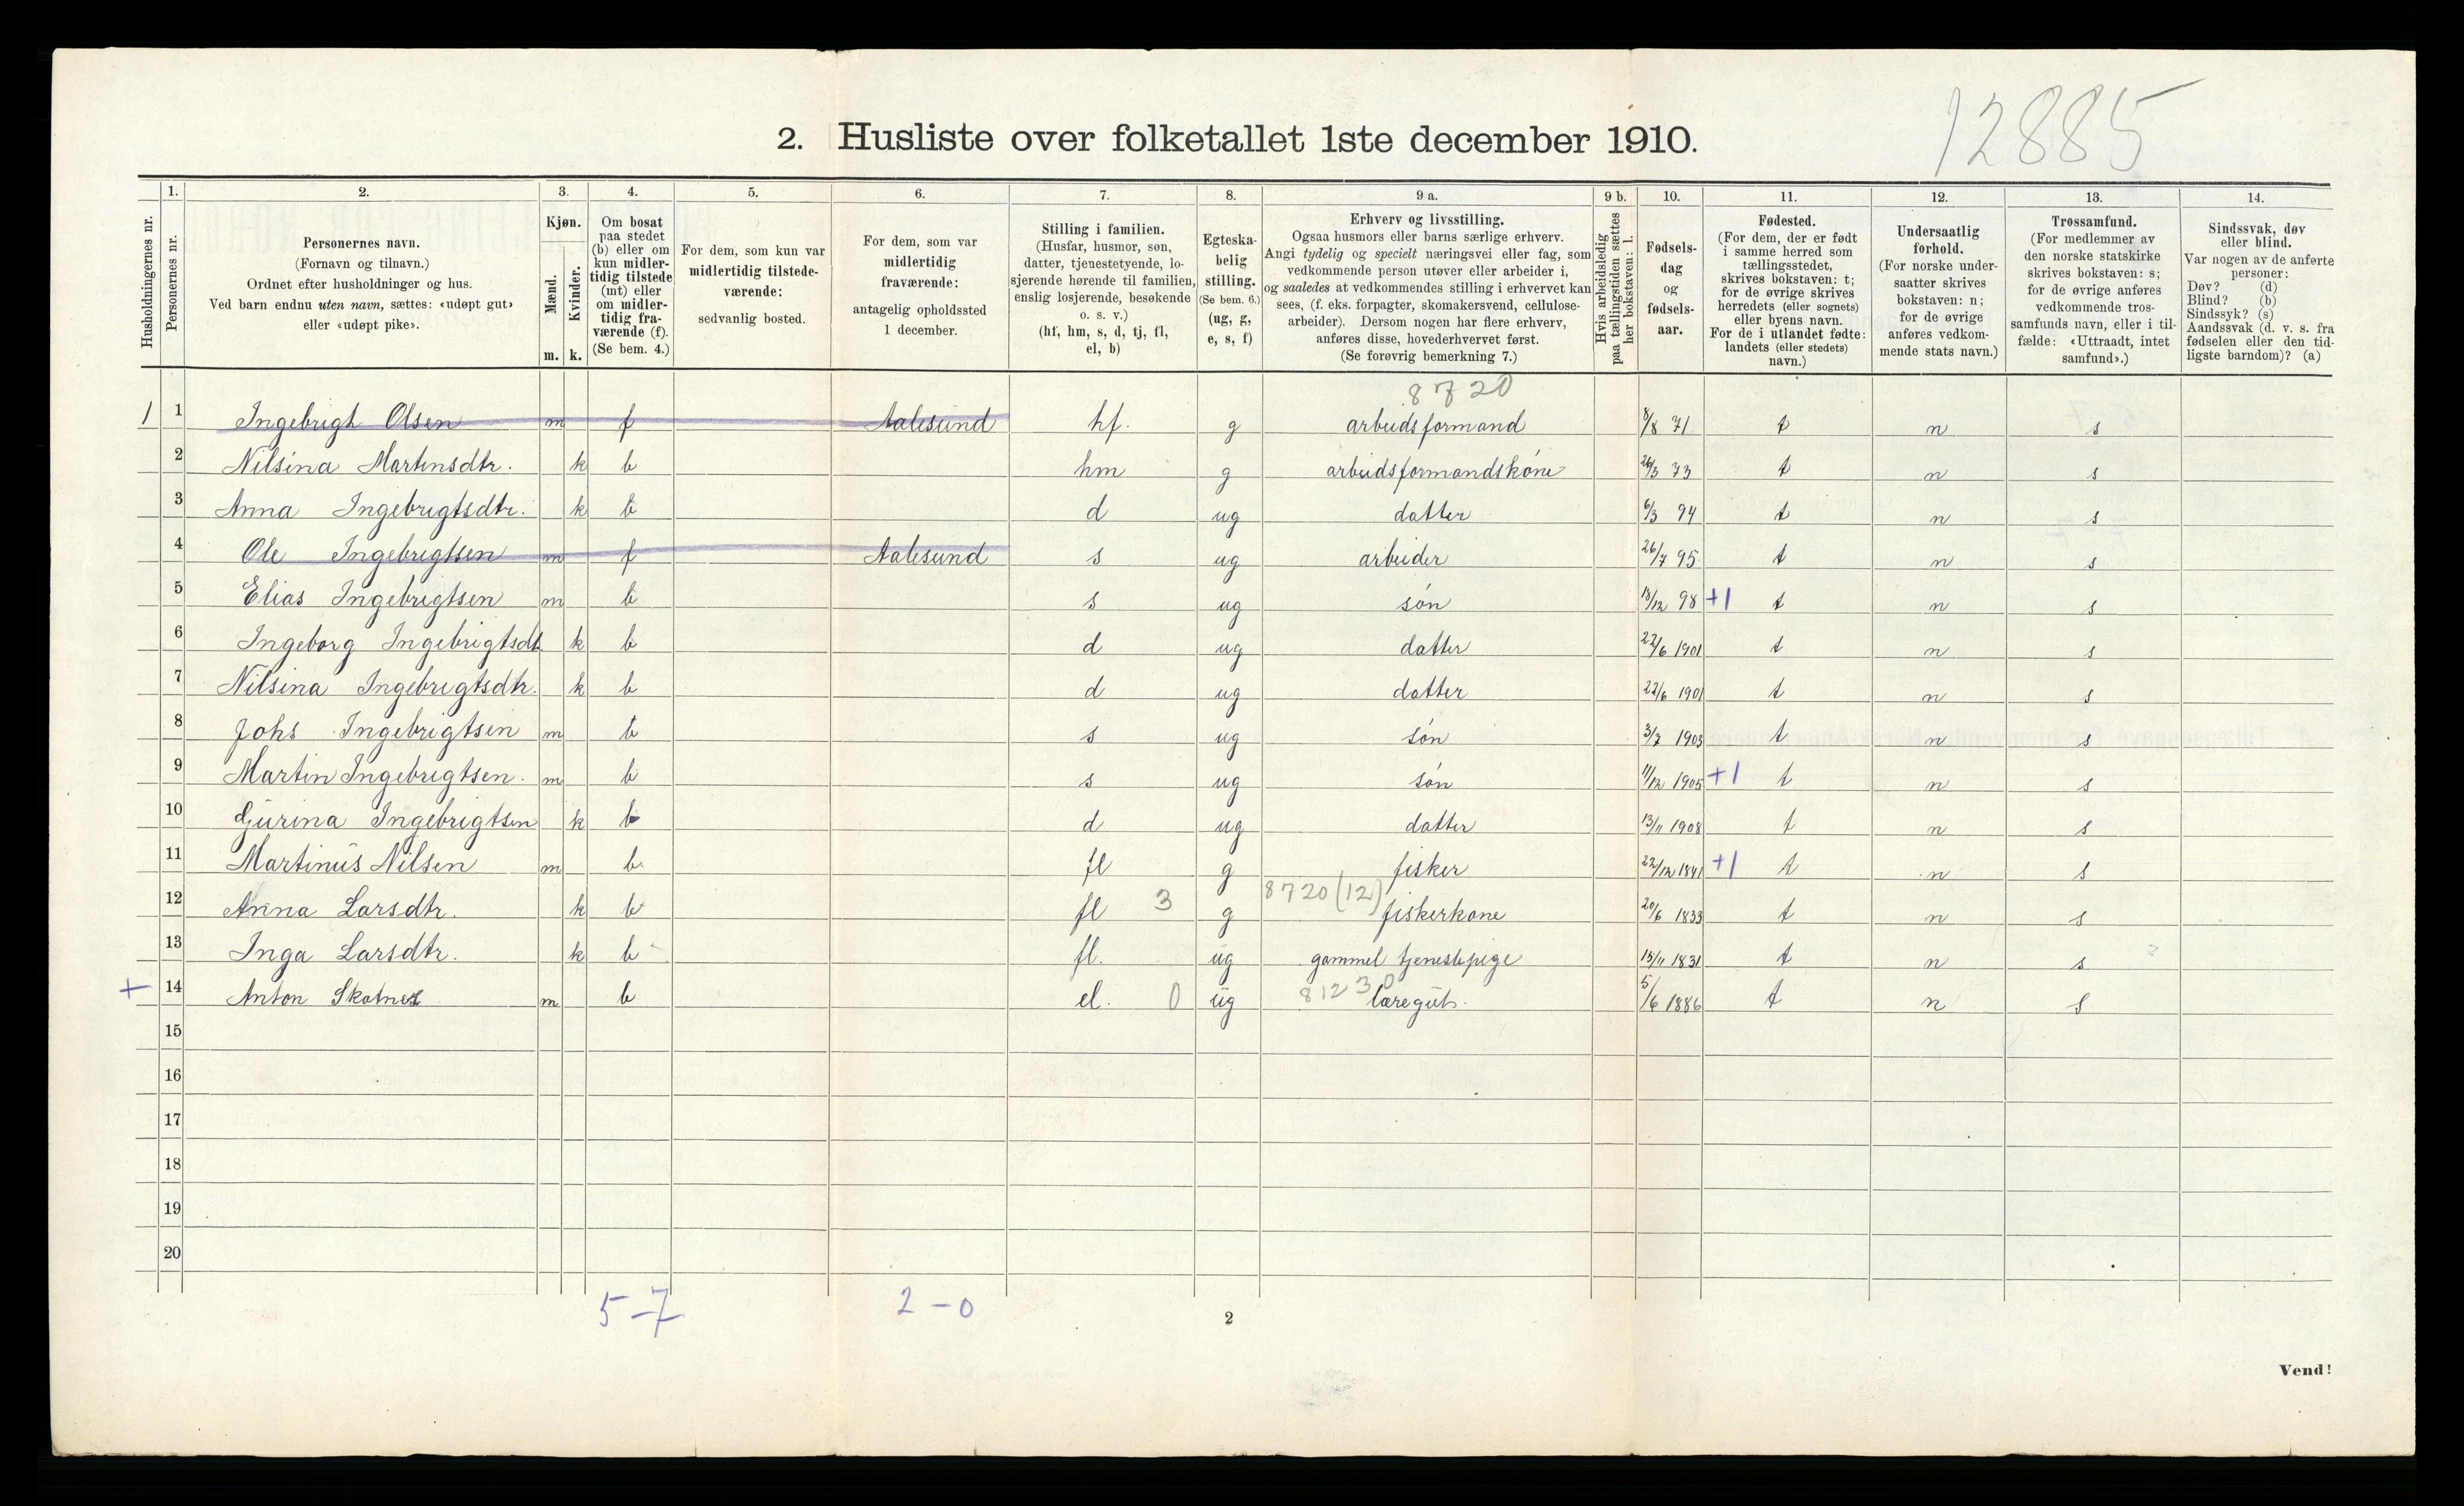 12885
2. Husliste over folketallet 1ste december 1910.
Husholdningernes nr.
1.
Personernes nr.
2.
Personernes navn.
(Fornavn og tilnavn.)
Ordnet efter husholdninger og hus.
Ved barn endnu uten navn, sættes: «udøpt gut»
eller «udøpt pike».
3.
Kjøn.
Mænd.
Kvinder.
m. k.
4.
Om bosat
paa stedet
(b) eller om
kun midler-
tidig tilstede
(mt) eller
om midler-
tidig fra-
værende (f).
(Se bem. 4.)
5.
For dem, som kun var
midlertidig tilstede-
værende:
sedvanlig bosted.
6.
For dem, som var
midlertidig
fraværende:
antagelig opholdssted
1 december.
7.
Stilling i familien.
(Husfar, husmor, søn,
datter, tjenestetyende, lo-
sjerende hørende til familien,
enslig losjerende, besøkende
o. s. v.)
(hf, hm, s, d, tj, fl,
el, b)
8.
Egteska-
belig
stilling.
(Se bem. 6.)
(ug, g,
e, s, f)
9 a.
Erhverv og livsstilling.
Ogsaa husmors eller barns særlige erhverv.
Angi tydelig og specielt næringsvei eller fag, som
vedkommende person utøver eller arbeider i,
og saaledes at vedkommendes stilling i erhvervet kan
sees, (f. eks. forpagter, skomakersvend, cellulose-
arbeider). Dersom nogen har flere erhverv,
anføres disse, hovederhvervet først.
(Se forøvrig bemerkning 7.)
9 b.
Hvis arbeidsledig
paa tællingstiden sættes
her bokstaven: l.
10.
Fødsels-
dag
og
fødsels-
aar.
11.
Fødested.
(For dem, der er født
i samme herred som
tællingsstedet,
skrives bokstaven: t;
for de øvrige skrives
herredets (eller sognets)
eller byens navn.
For de i utlandet fødte:
landets (eller stedets)
navn.)
12.
Undersaatlig
forhold.
(For norske under-
saatter skrives
bokstaven: n;
for de øvrige
anføres vedkom-
mende stats navn.)
13.
Trossamfund.
(For medlemmer av
den norske statskirke
skrives bokstaven: s;
for de øvrige anføres
vedkommende tros-
samfunds navn, eller i til-
fælde: «Uttraadt, intet
samfund».)
14.
Sindssvak, døv
eller blind.
Var nogen av de anførte
personer:
Døv? (d)
Blind? (b)
Sindssyk? (s)
Aandssvak (d. v. s. fra
fødselen eller den tid-
ligste barndom)? (a)
8720
1 1 Ingebrigt Olsen m f Aalesund hf. g arbeidsformand 8/8 71 t n s
2 Nilsina Martinsdtr. k b hm g arbeidsformandskone 26/3 73 t n s
3 Anna Ingebrigtsdtr. k b d ug datter 6/3 94 t n s
4 Ole Ingebrigtsen m f Aalesund s ug arbeider 26/7 95 t n s
5 Elias Ingebrigtsen m b s ug søn 18/12 98 +1 t n s
6 Ingeborg Ingebrigtsdt k b d ug datter 22/6 1901 t n s
7 Nilsina Ingebrigtsdtr. k b d ug datter 22/6 1901 t n s
8 Johs Ingebrigtsen m b s ug søn 3/7 1903 t n s
9 Martin Ingebrigtsen. m b s ug søn 11/12 1905 +1 t n s
10 Gurina Ingebrigtsen k b d ug datter 13/11 1908 t n s
11 Martinus Nilsen m b fl g fisker 22/12 1841 +1 t n s
12 Anna Larsdtr. k b fl 3 g 8720 (12) fiskerkone 20/6 1833 t n s
13 Inga Larsdtr. k b - fl. ug gammel tjenestepige 15/11 1831 t n s
+ 14 Anton Skotnes m b el. 0 ug 8123 0 læregut. 5/6 1886 t n s
15
16
17
18
19
20
5-7 2-0
2
Vend!